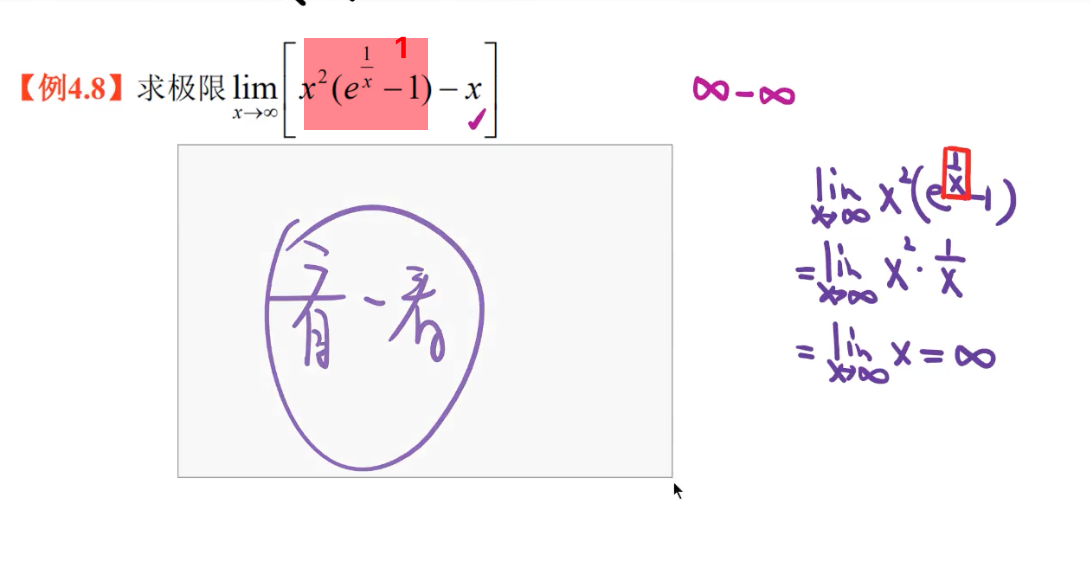 【例4.8】求极限 lim x→∞ [x²(e^(1/x) −1) − x] ✓
1
∞−∞
lim x→∞ x²(e^(1/x) −1)
= lim x→∞ x² · 1/x
= lim x→∞ x = ∞